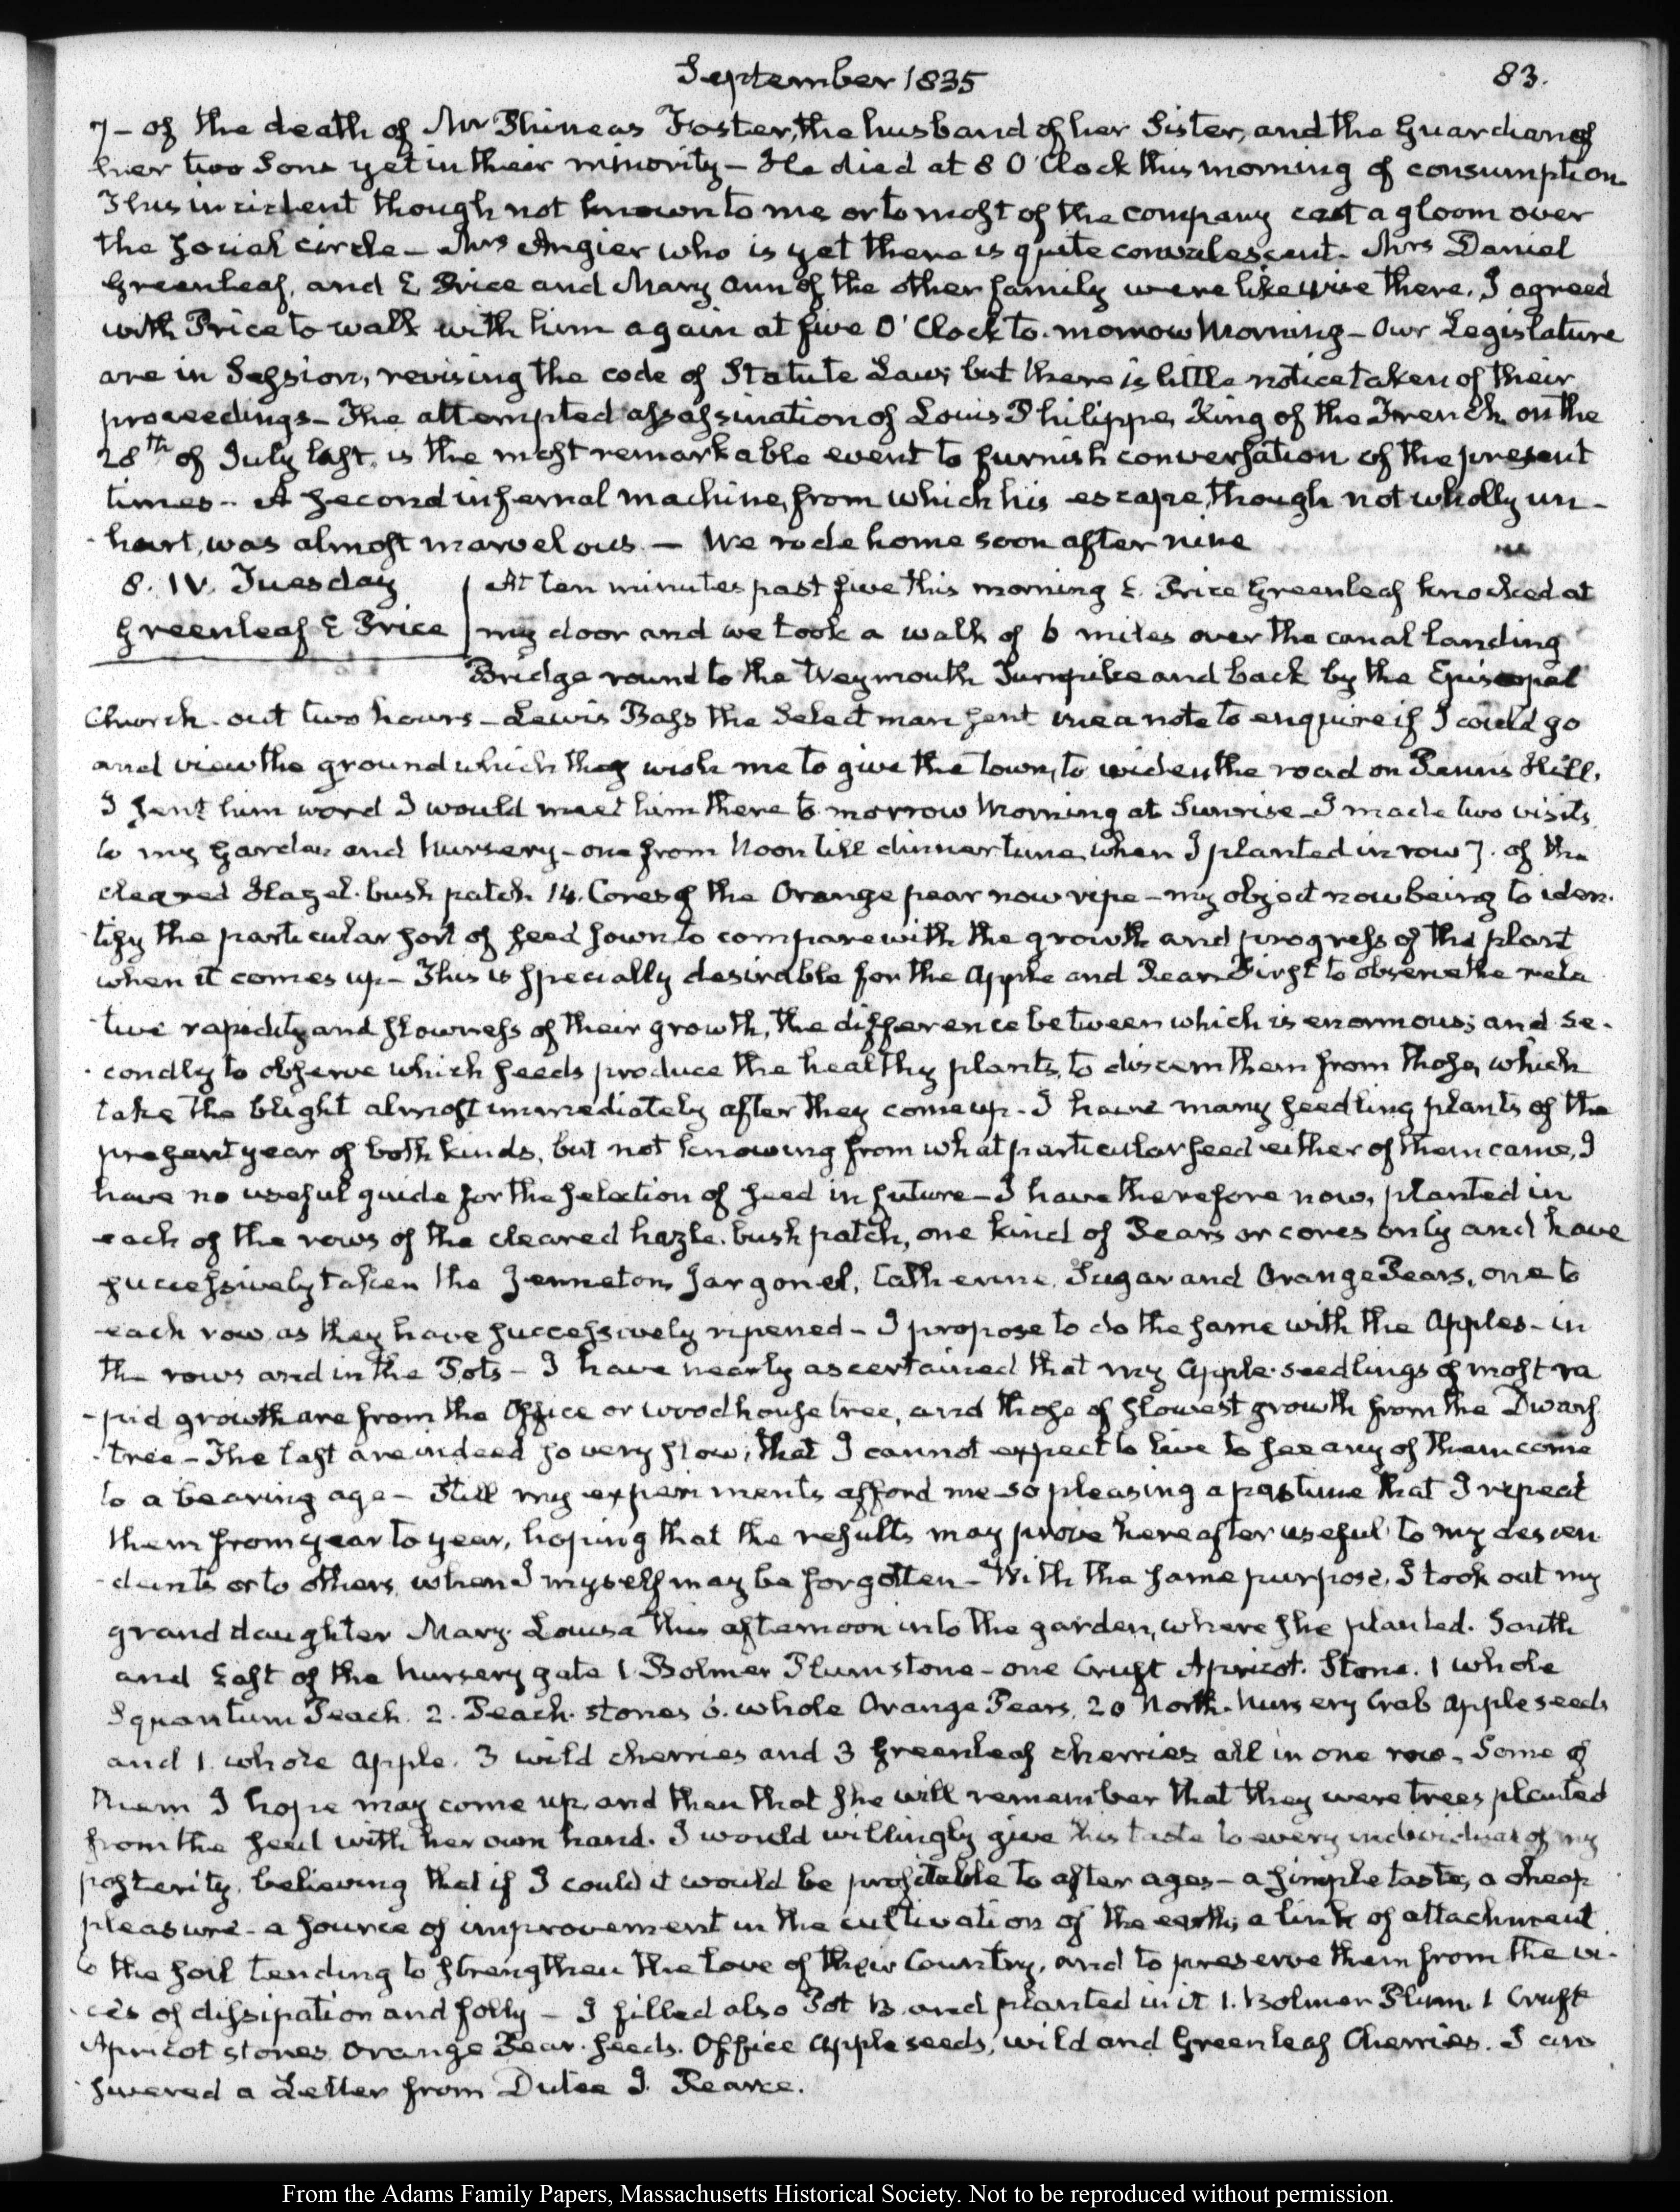 September 1835
83.
7 – of the death of Mr Phineas Foster, the husband of her Sister, and the Guardian of
her two Sons yet in their minority – He died at 8 O'Clock this morning of consumption
This incident though not known to me or to most of the company cast a gloom over
the social circle – Mrs Angier who is yet there is quite convalescent – Mrs Daniel
Greenleaf, and E. Price and Mary Ann of the other family were likewise there. I agreed
with Price to walk with him again at five O'Clock to-morrow Morning – Our Legislature
are in Session, revising the code of Statute Law; but there is little notice taken of their
proceedings – The attempted assassination of Louis Philippe, King of the French, on the
28th of July last, is the most remarkable event to furnish conversation of the present
times – A second infernal machine, from which his escape, though not wholly un-
hurt, was almost marvelous. – We rode home soon after nine
8. IV. Tuesday
Greenleaf E Price
At ten minutes past five this morning E. Price Greenleaf knocked at
my door and we took a walk of 6 miles over the canal landing
Bridge round to the Weymouth Turnpike and back by the Episcopal
Church – out two hours – Lewis Bass the Selectman sent me a note to enquire if I could go
and view the ground which they wish me to give the town, to widen the road on Penns Hill.
I sent him word I would meet him there to-morrow Morning at Sunrise – I made two visits
to my garden and Nursery – one from Noon till dinner time, when I planted in row 7. of the
cleared Hazel-bush patch 14. Cores of the Orange pear now ripe – my object now being to iden-
tify the particular sort of seed sown, to compare with the growth and progress of the plant
when it comes up – This is specially desirable for the Apple and Pear – First to observe the rela
tive rapidity and slowness of their growth, the difference between which is enormous; and se-
condly to observe which seeds produce the healthy plants, to discern them from those, which
take the blight almost immediately after they come up – I have many seedling plants of the
present year of both kinds, but not knowing from what particular seed either of them came, I
have no useful guide for the selection of seed in future – I have therefore now, planted in
each of the rows of the cleared hazle-bush patch, one kind of Pears or cores only and have
successively taken the Jenneton, Jargonel, Catherine, Sugar and Orange Pears, one to
each row as they have successively ripened – I propose to do the same with the Apples – in
the rows and in the Pots – I have nearly ascertained that my Apple-seedlings of most ra
pid growth are from the Office or woodhouse tree, and those of slowest growth from the Dwarf
tree – The last are indeed so very slow, that I cannot expect to live to see any of them come
to a bearing age – Still my experiments afford me so pleasing a pastime that I repeat
them from year to year, hoping that the results may prove hereafter useful to my descen
dants or to others, when I myself may be forgotten – With the same purpose, I took out my
grand daughter Mary-Louisa this afternoon into the garden, where she planted. South
and East of the Nursery gate 1 Bolmer Plumstone – one Cruft Apricot-Stone. 1 whole
Squantum Peach. 2. Peach-stones 6. whole Orange Pears, 20 North-Nursery Crab Apple seeds
and 1. whole apple. 3 wild cherries and 3 Greenleaf cherries all in one row – Some of
them I hope may come up, and then that she will remember that they were trees planted
from the seed with her own hand. I would willingly give this taste to every individual of my
posterity, believing that if I could it would be profitable to after ages – a simple taste, a cheap
pleasure – a source of improvement in the cultivation of the earth; a link of attachment
to the soil tending to strengthen the love of their Country, and to preserve them from the vi-
ces of dissipation and folly – I filled also Pot 13 and planted in it 1. Bolmer Plum. 1 Cruft
Apricot stones, Orange Pear-seeds. Office Apple seeds, wild and Greenleaf Cherries. I an
swered a Letter from Dutee J. Pearce.
From the Adams Family Papers, Massachusetts Historical Society. Not to be reproduced without permission.